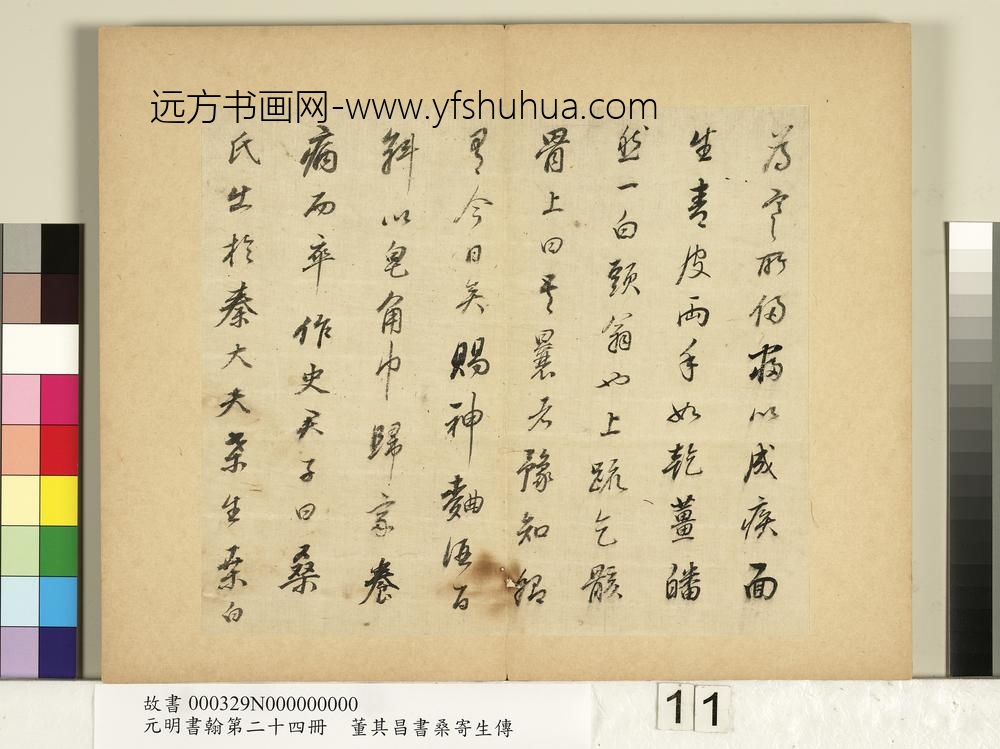 远方书画网-www.yfshuhua.com
為寒所侵竊以成疾面
生青皮兩手如乾薑皤
然一白頭翁也上疏乞骸
骨上曰吾曩者豫知卿
有今日矣賜神麯伍百
斛以皂角巾歸家養
病而卒作史君子曰桑
氏出於秦大夫桑生桑白
故書 000329N000000000
元明書翰第二十四冊 董其昌書桑寄生傳
11